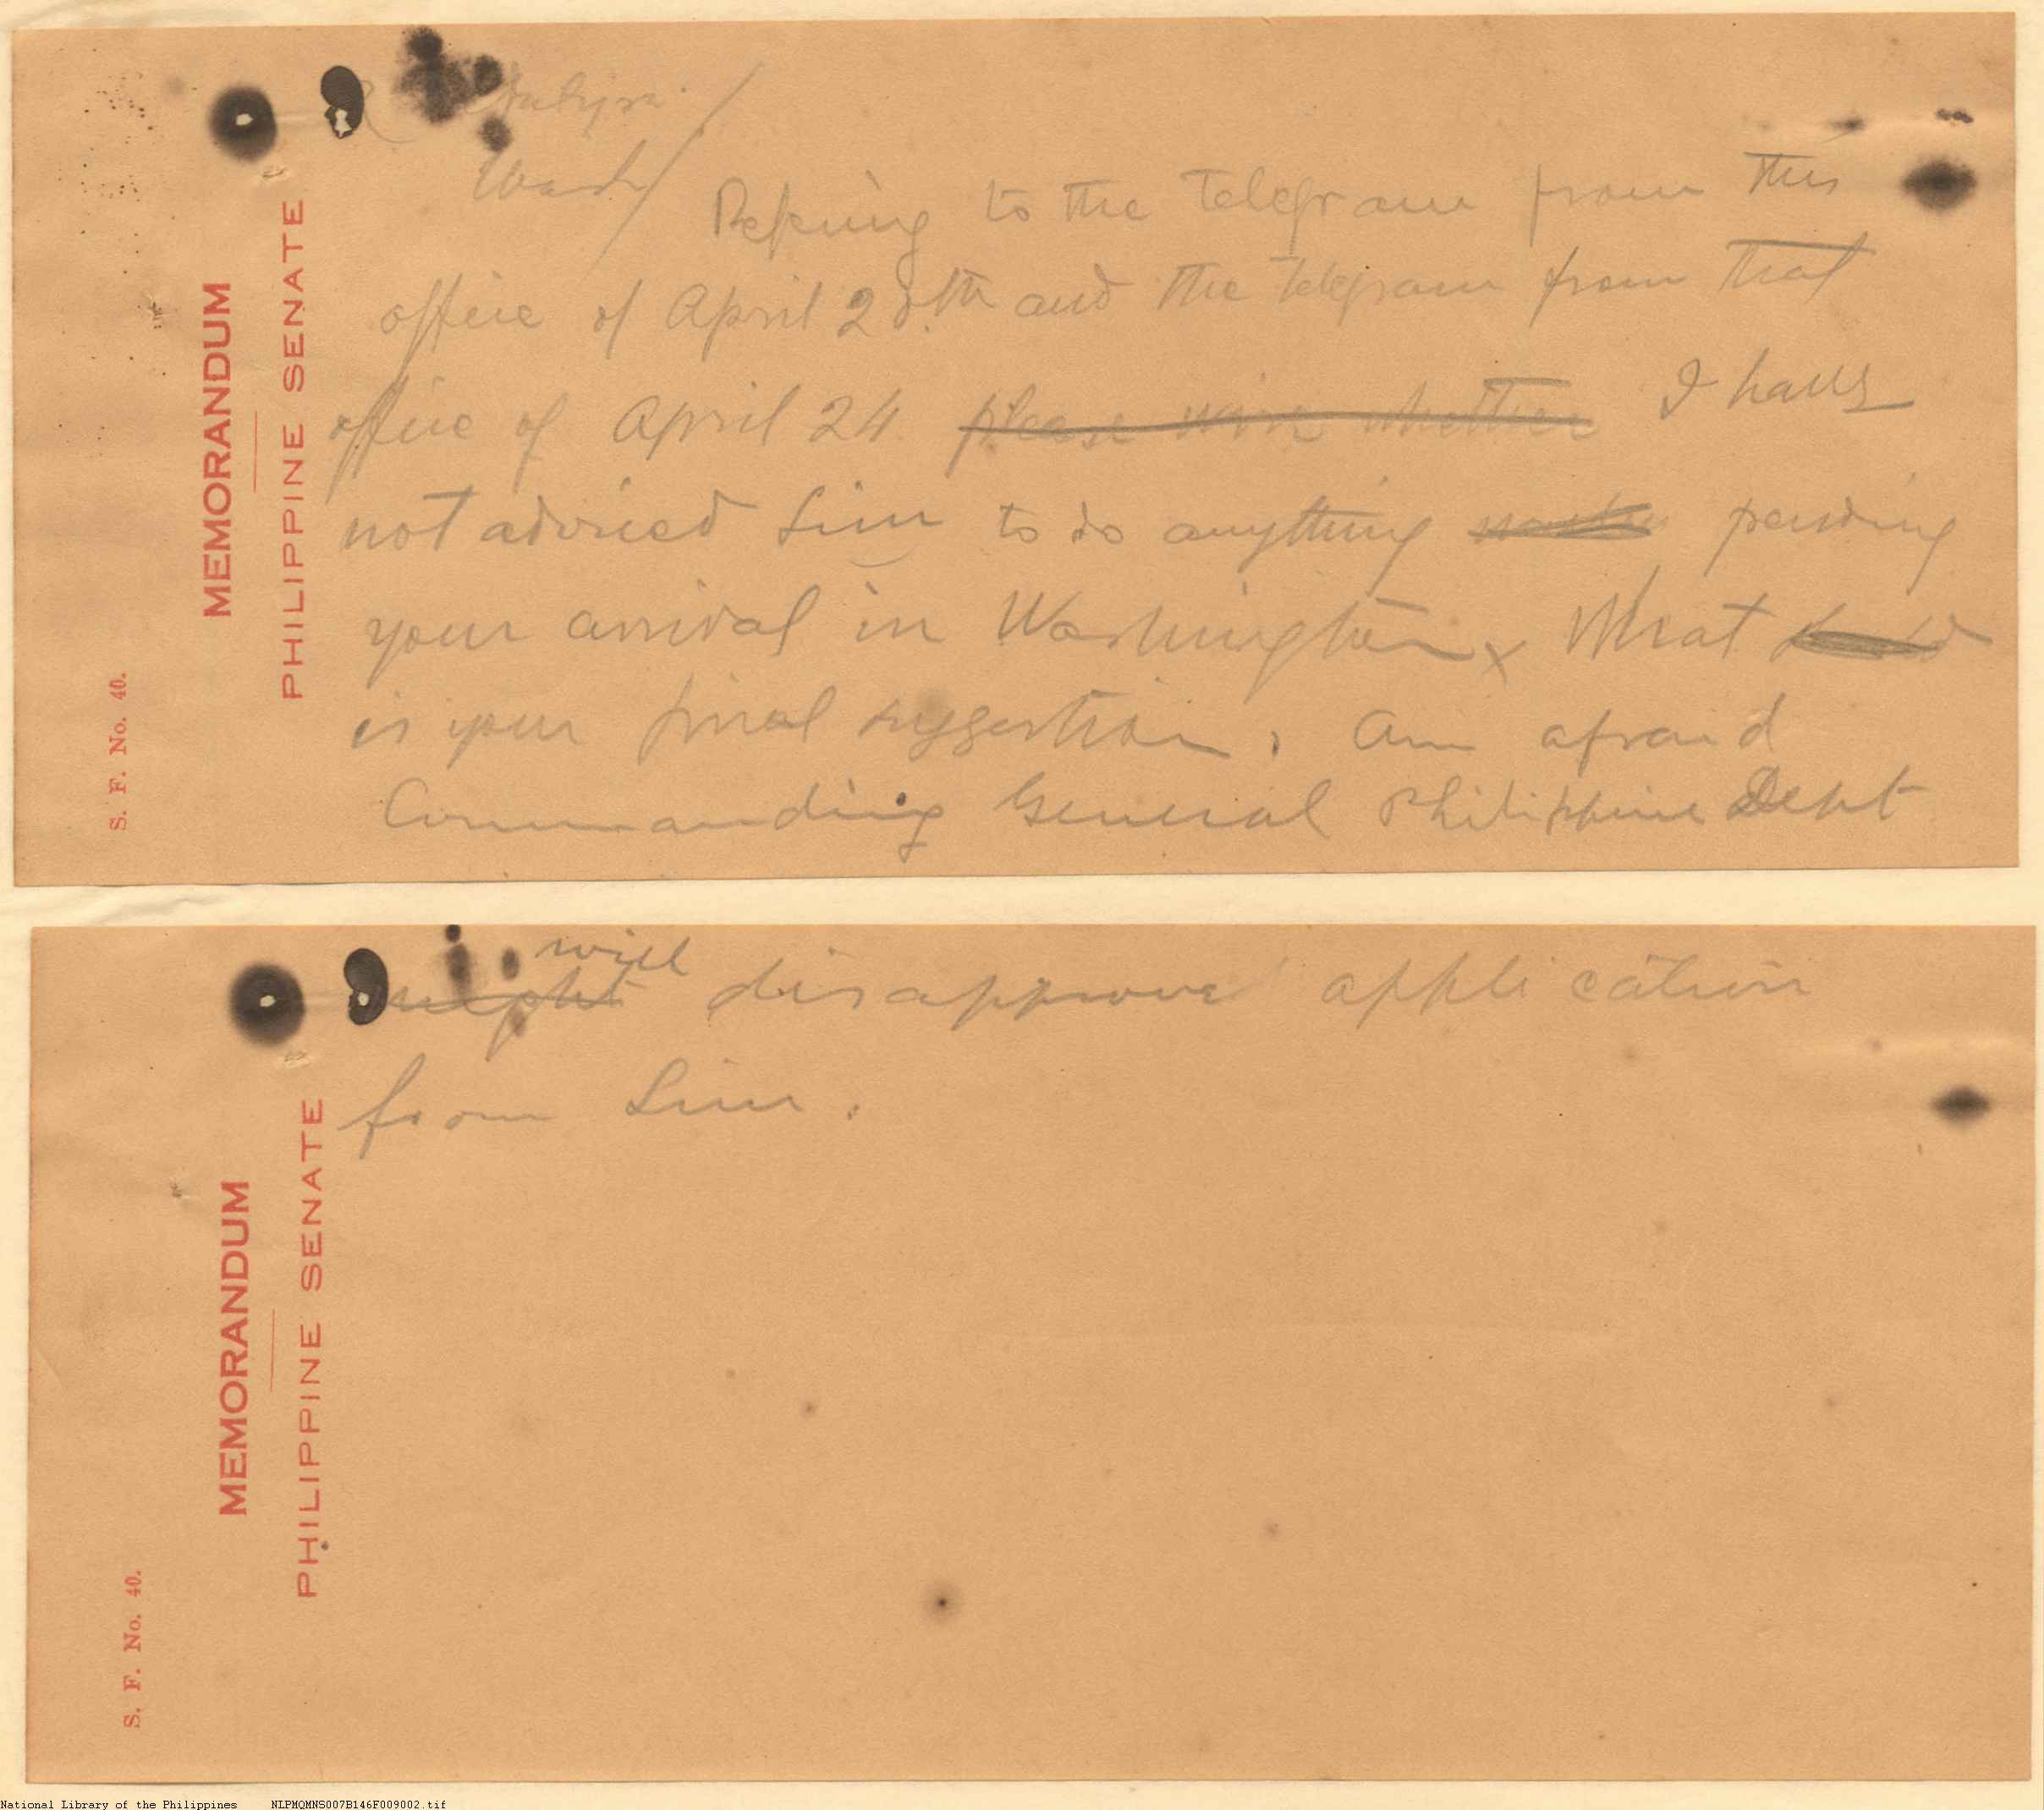 MEMORANDUM
PHILIPPINE SENATE
S. F. No. 40.
Wash/
Refering to the telegram from this
office of April 28th and the telegram from that
office of April 24 please wire whether I have
not adviced Lim to do anything pending
your arrival in Washington x What
is your final suggestion. Am afraid
Commanding General Philippine Dept
will
might disapprove application
from Lim.
MEMORANDUM
PHILIPPINE SENATE
S. F. No. 40.
National Library of the Philippines NLPMQMNS007B146F009002.tif